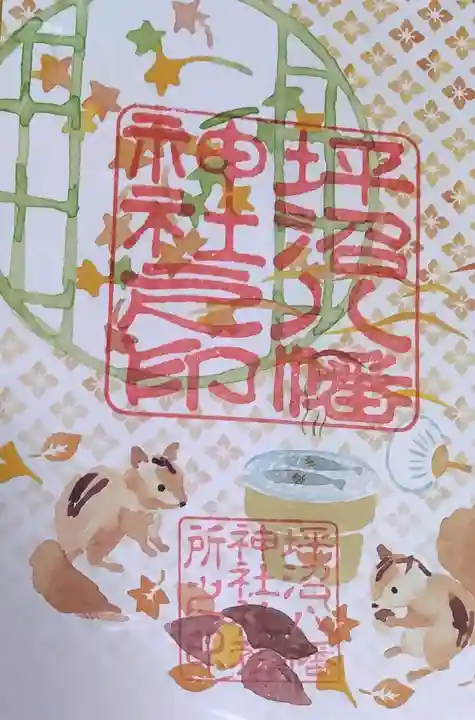 坪沼八幡
神社之印
坪沼八幡
神社
所